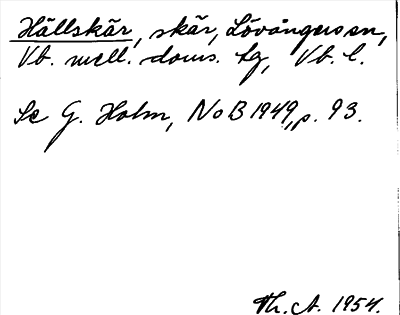 Hällskär, skär, Lövångers sn,
Vb. mell. doms. tg, Vb. l.
Se G. Holm, NoB 1949, p. 93.
Th. A. 1954.